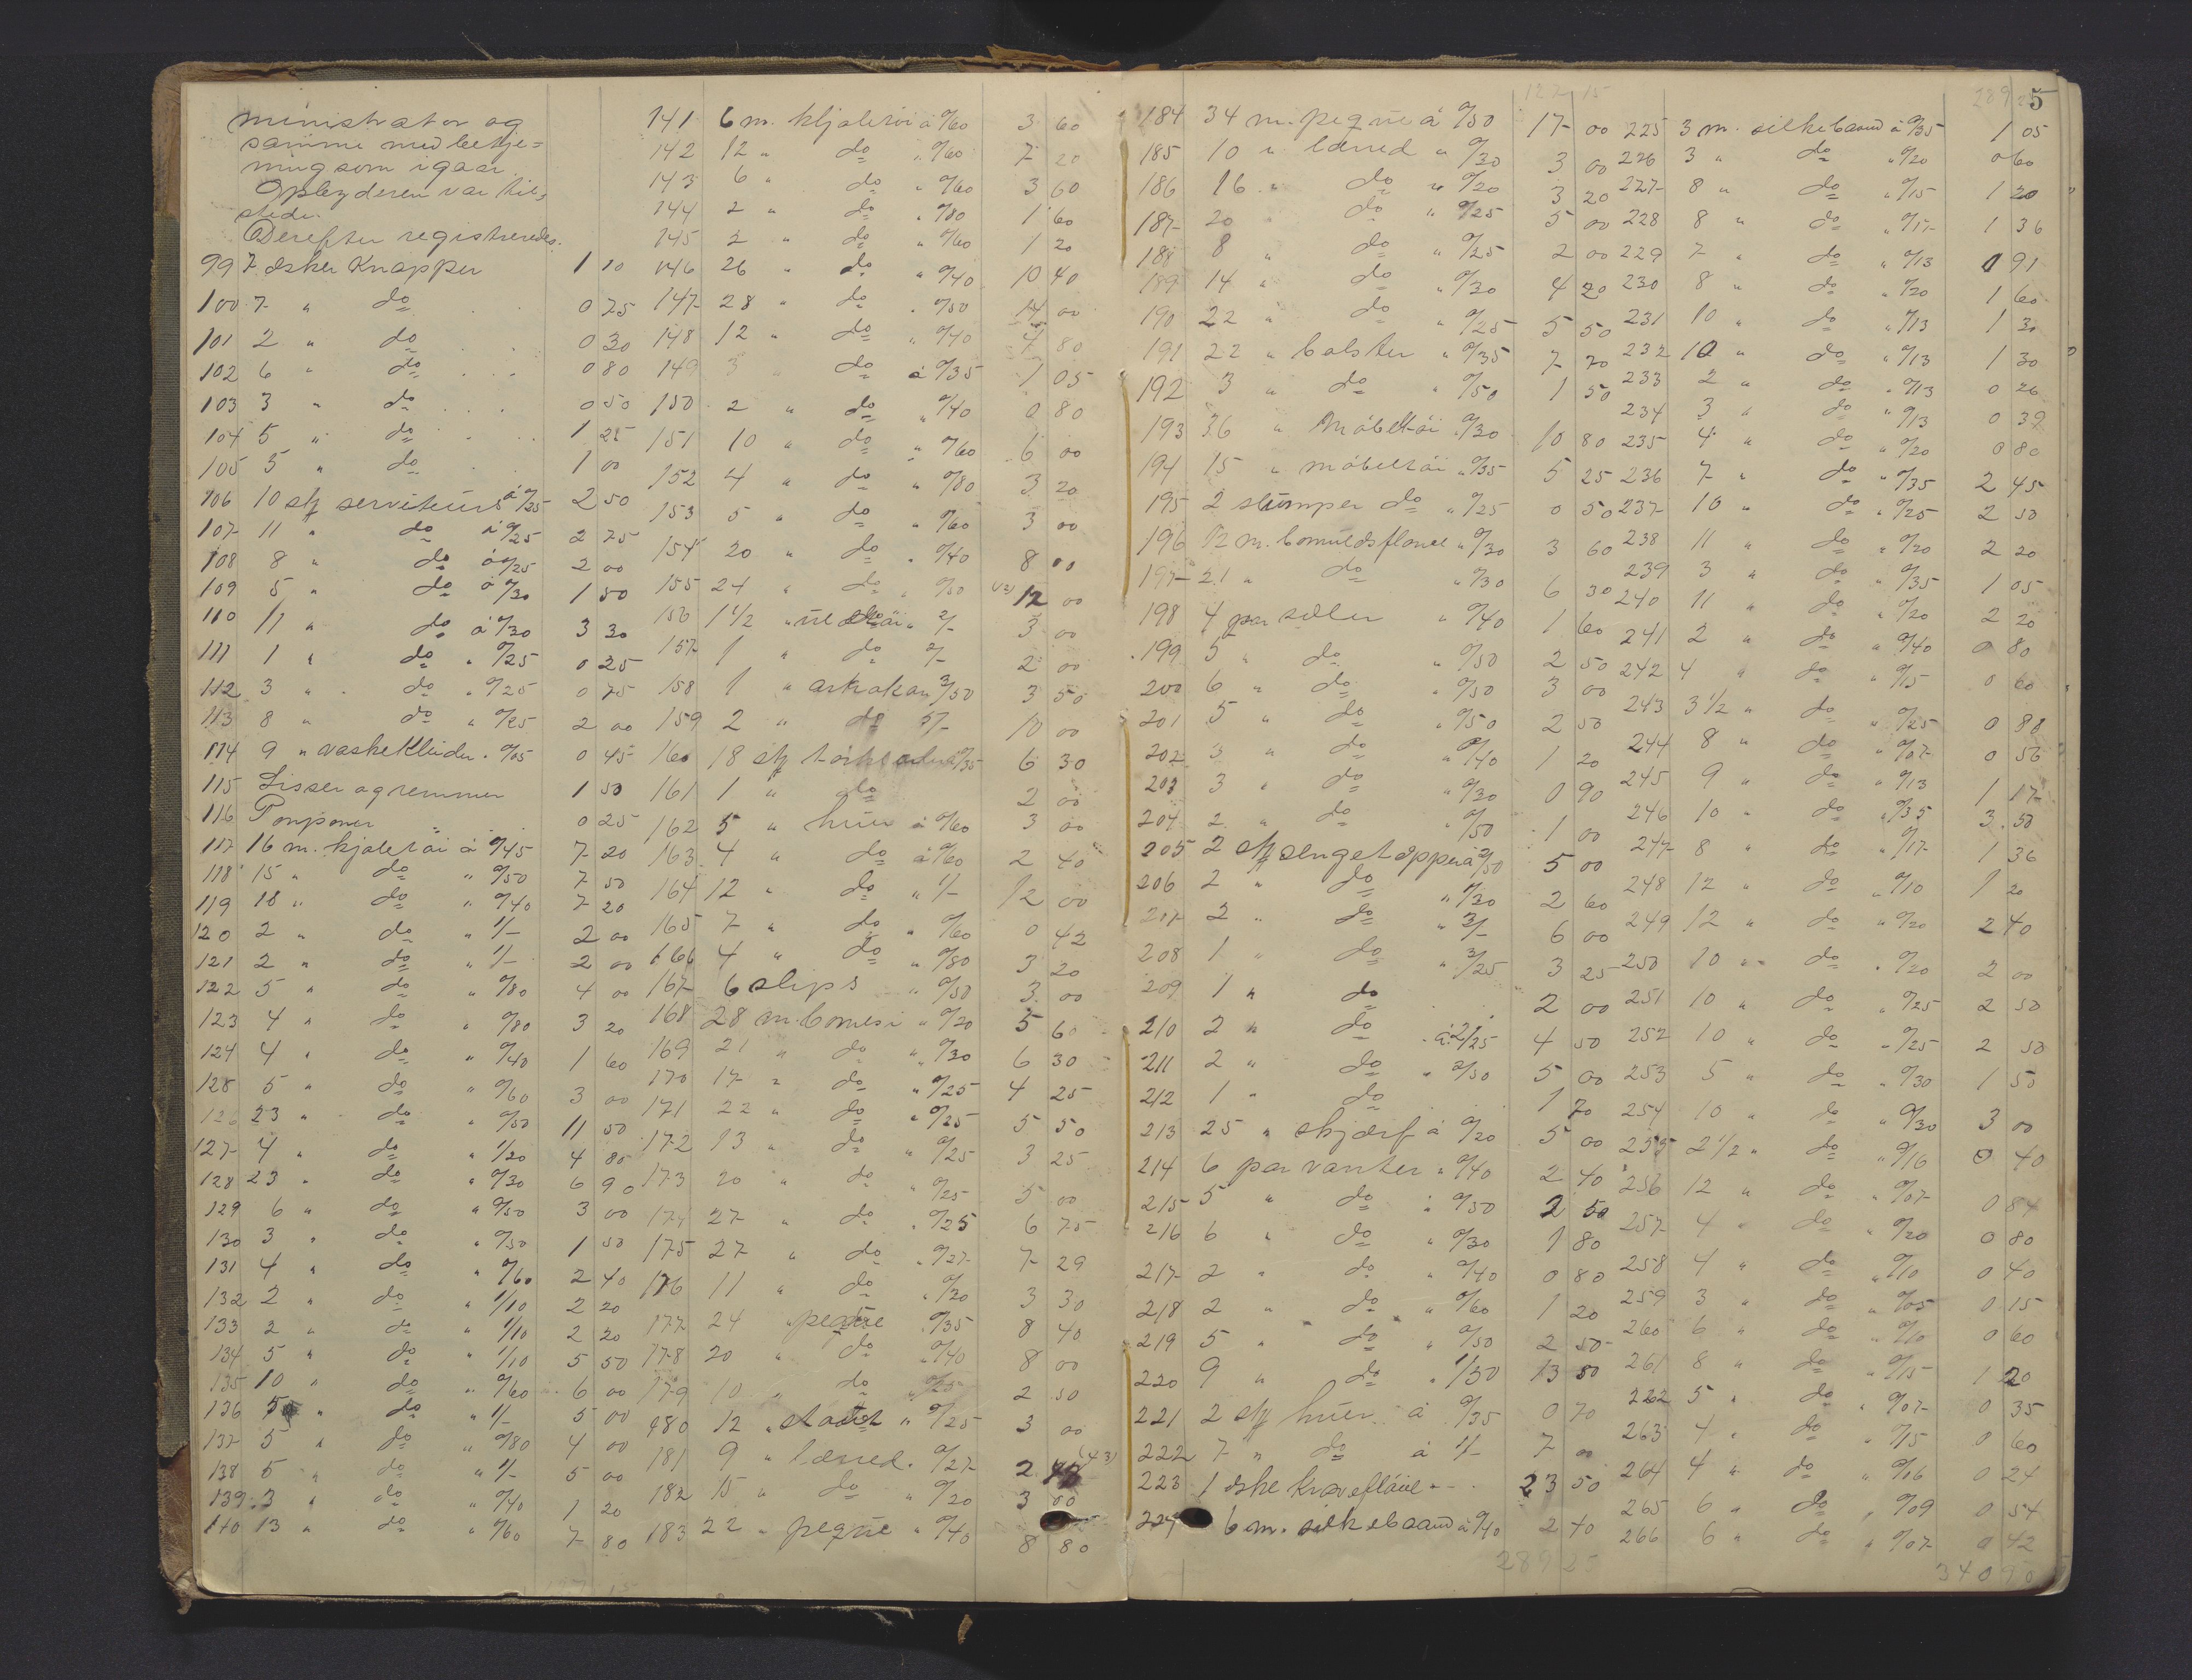 ministrator og
samme med betje=
ning som igaar.
Opbyderen var til-
stede.
Derefter registreredes.
99 7 æsker Knapper 1 10
100 7 " do 0 75
101 2 " do 0 30
102 6 " do 0 80
103 3 " do 0 50
104 5 " do 1 25
105 5 " do 1 00
106 10 stk serviteurs à 0/25 2 50
107 11 " do à 0/25 2 75
108 8 " do à 0/25 2 00
109 5 " do à 0/30 1 50
110 11 " do à 0/30 3 30
111 1 " do " 0/25 0 25
112 3 " do " 0/25 0 75
113 8 " do " 0/25 2 00
114 9 " vaskeKluder " 0/05 0 45
115 Lisser og remmer 1 50
116 Pomponer 0 25
117 16 m. kjoletöi à 0/45 7 20
118 15 " do " 0/50 7 50
119 18 " do " 0/40 7 20
120 2 " do " 1/- 2 00
121 2 " do " 1/- 2 00
122 5 " do " 0/80 4 00
123 4 " do " 0/80 3 20
124 4 " do " 0/40 1 60
125 5 " do " 0/60 3 00
126 23 " do " 0/50 11 50
127 4 " do " 1/20 4 80
128 23 " do " 0/30 6 90
129 6 " do " 0/50 3 00
130 3 " do " 0/50 1 50
131 4 " do " 0/60 2 40
132 2 " do " 1/10 2 20
133 2 " do " 1/10 2 20
134 5 " do " 1/10 5 50
135 10 " do " 0/60 6 00
136 5 " do " 1/- 5 00
137 5 " do " 0/80 4 00
138 5 " do " 1/- 5 00
139 3 " do " 0/40 1 20
140 13 " do " 0/60 7 80
141 6 m. kljoletöi à 0/60 3 60
142 12 " do " 0/60 7 20
143 6 " do " 0/60 3 60
144 2 " do " 0/80 1 60
145 2 " do " 0/60 1 20
146 26 " do " 0/40 10 40
147 28 " do " 0/50 14 00
148 12 " do " 0/40 4 80
149 3 " do à 0/35 1 05
150 2 " do " 0/40 0 80
151 10 " do " 0/60 6 00
152 4 " do " 0/80 3 20
153 5 " do " 0/60 3 00
154 20 " do " 0/40 8 00
155 24 " do " 0/50 12 00
156 1 1/2 " " 2/- 3 00
157 1 " do 2/- 2 00
158 1 " askakan 3/50 3 50
159 2 " do 5/- 10 00
160 18 stk 0/35 6 30
161 1 " do 2 00
162 5 " huer à 0/60 3 00
163 4 " do à 0/60 2 40
164 12 " do " 1/- 12 00
165 7 " do " 0/60 0 42
166 4 " do " 0/80 3 20
167 6 slips " 0/50 3 00
168 28 m. bomesi " 0/20 5 60
169 21 " do " 0/30 6 30
170 17 " do " 0/25 4 25
171 22 " do " 0/25 5 50
172 13 " do " 0/25 3 25
173 20 " do " 0/25 5 00
174 27 " do " 0/25 6 75
175 27 " do " 0/27 7 29
176 11 " do " 0/30 3 30
177 24 " peqüe " 0/35 8 40
178 20 " do " 0/40 8 00
179 10 " do " 0/25 2 50
180 12 " " 0/25 3 00
181 9 " lærred " 0/27 2 (43)
182 15 " do " 0/20 3 00
183 22 " peqüe " 0/40 8 80
122 15
184 34 m. peqüe à 0/50 17 00
185 10 " lærred " 0/30 3 00
186 16 " do " 0/20 3 20
187 20 " do " 0/25 5 00
188 8 " do " 0/25 2 00
189 14 " do " 0/30 4 20
190 22 " do " 0/25 5 50
191 22 " bolster " 0/35 7 70
192 3 " do " 0/50 1 50
193 36 " Möbeltöi " 0/30 10 80
194 15 " möbeltöi " 0/35 5 25
195 2 stumper do " 0/25 0 50
196 12 m. bomuldsflonel " 0/30 3 60
197 21 " do " 0/30 6 30
198 4 par seller " 0/40 1 60
199 5 " do " 0/50 2 50
200 6 " do " 0/50 3 00
201 5 " do " 0/50 2 50
202 3 " do " 0/40 1 20
203 3 " do " 0/30 0 90
204 2 " do " 0/50 1 00
205 2 stk sengetæpper à 2/50 5 00
206 2 " do " 1/30 2 60
207 2 " do " 3/- 6 00
208 1 " do " 3/25 3 25
209 1 " do 2 00
210 2 " do à 2/25 4 50
211 2 " do " 2/50 5 00
212 1 " do 1 70
213 25 " skjærf à 0/20 5 00
214 6 par vanter " 0/40 2 40
215 5 " do " 0/50 2 50
216 6 " do " 0/30 1 80
217 2 " do " 0/40 0 80
218 2 " do " 0/60 1 20
219 5 " do " 0/50 2 50
220 9 " do " 1/50 13 50
221 2 stk huer à 0/35 0 70
222 7 " do à 1/- 7 00
223 1 æske Kraveflöiel 23 50
224 6 m. silkebaand à 0/40 2 40
289 25
289 25
5
225 3 m. silkebaand à 0/35 1 05
226 3 " do " 0/20 0 60
227 8 " do " 0/15 1 20
228 8 " do " 0/17 1 36
229 7 " do " 0/13 0 91
230 8 " do " 0/20 1 60
231 10 " do " 0/13 1 30
232 10 " do " 0/13 1 30
233 2 " do " 0/13 0 26
234 3 " do " 0/13 0 39
235 4 " do " 0/20 0 80
236 7 " do " 0/35 2 45
237 10 " do " 0/25 2 50
238 11 " do " 0/20 2 20
239 3 " do " 0/35 1 05
240 11 " do " 0/20 2 20
241 2 " do " 0/40 0 80
242 4 " do " 0/15 0 60
243 3 1/2 " do " 0/25 0 88
244 8 " do " 0/07 0 56
245 9 " do " 0/13 1 17
246 10 " do " 0/35 3 50
247 8 " do " 0/17 1 36
248 12 " do " 0/10 1 20
249 12 " do " 0/20 2 40
250 10 " do " 0/20 2 00
251 10 " do " 0/25 2 50
252 10 " do " 0/25 2 50
253 5 " do " 0/30 1 50
254 10 " do " 0/30 3 00
255 2 1/2 " do " 0/16 0 40
256 12 " do " 0/07 0 84
257 4 " do " 0/20 0 80
258 4 " do " 0/10 0 40
259 3 " do " 0/05 0 15
260 6 " do " 0/10 0 60
261 8 " do " 0/15 1 20
262 5 " do " 0/07 0 35
263 4 " do " 0/15 0 60
264 4 " do " 0/16 0 24
265 6 " do " 0/09 0 54
266 6 " do " 0/07 0 42
340 90